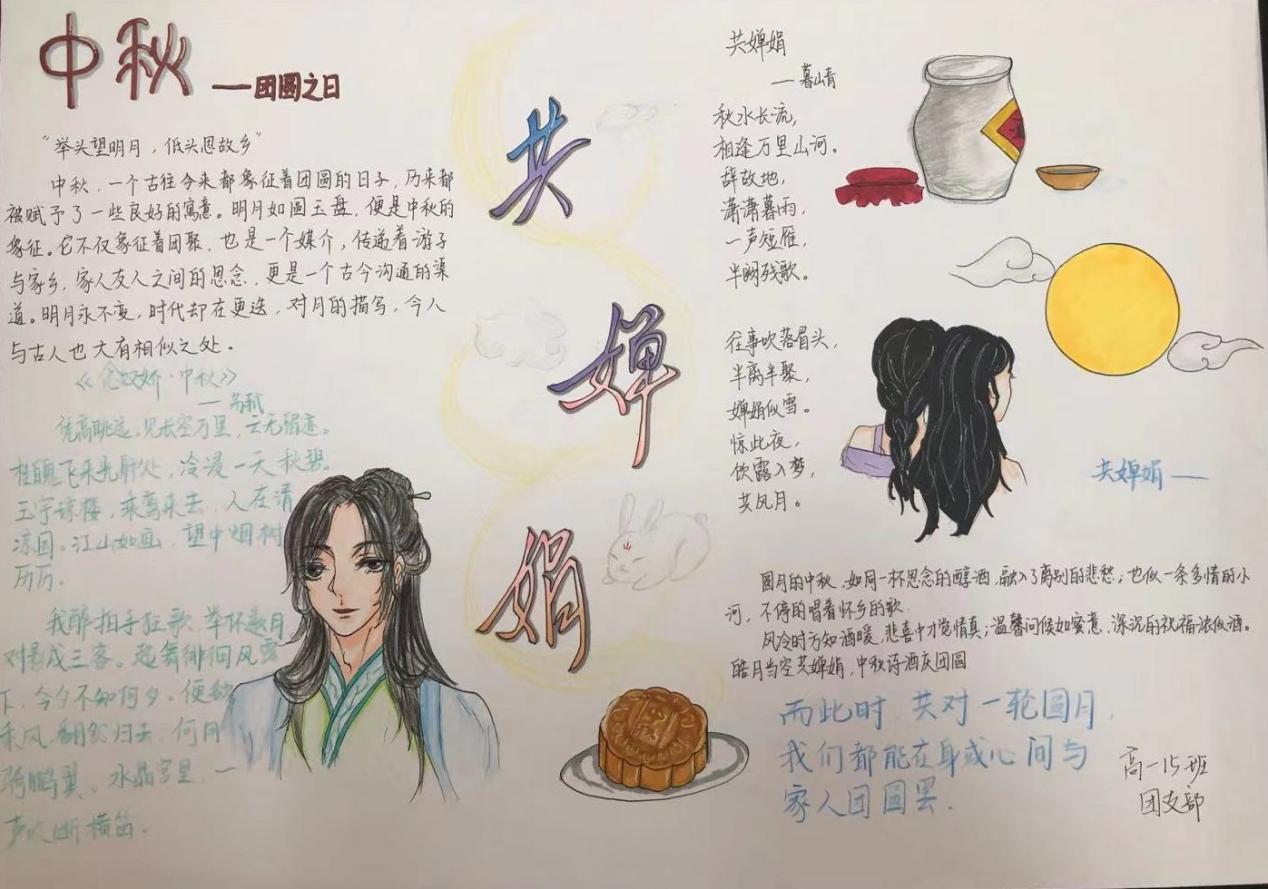 中秋
——团圆之日
“举头望明月，低头思故乡”
中秋，一个古往今来都象征着团圆的日子，历来都
被赋予了一些良好的寓意。明月如圆玉盘，便是中秋的
象征。它不仅象征着团聚，也是一个媒介，传递着游子
与家乡，家人友人之间的思念，更是一个古今沟通的渠
道。明月永不变，时代却在更迭，对月的描写，今人
与古人也大有相似之处。
《念奴娇·中秋》
——苏轼
凭高眺远，见长空万里，云无留迹。
桂魄飞来光射处，冷浸一天秋碧。
玉宇琼楼，乘鸾来去，人在清
凉国。江山如画，望中烟树
历历。
我醉拍手狂歌，举杯邀月，
对影成三客。起舞徘徊风露
下，今夕不知何夕。便欲
乘风，翻然归去，何用
骑鹏翼。水晶宫里，一
声吹断横笛。
共
婵
娟
共婵娟
——暮山青
秋水长流，
相逢万里山河。
辞故地，
潇潇暮雨，
一声短雁，
半阕残歌。
往事吹落眉头，
半离半聚，
婵娟似雪。
惊此夜，
饮露入梦，
共风月。
酒
共婵娟——
圆月的中秋，如同一杯思念的醇酒，融入了离别的悲愁；也似一条多情的小
河，不停的唱着怀乡的歌。
风冷时方知酒暖，悲喜中才觉情真；温馨问候如蜜意，深沉的祝福浓似酒。
皓月当空共婵娟，中秋诗酒庆团圆
而此时，共对一轮圆月，
我们都能在身或心间与
家人团圆罢.
高一15班
团支部